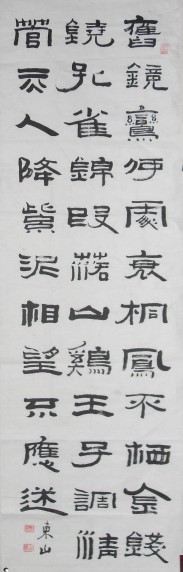 舊鏡鸞何處衰桐鳳不栖金錢
饒孔雀錦段落山鷄王子調清
管天人降紫泥相望不應迷
東山